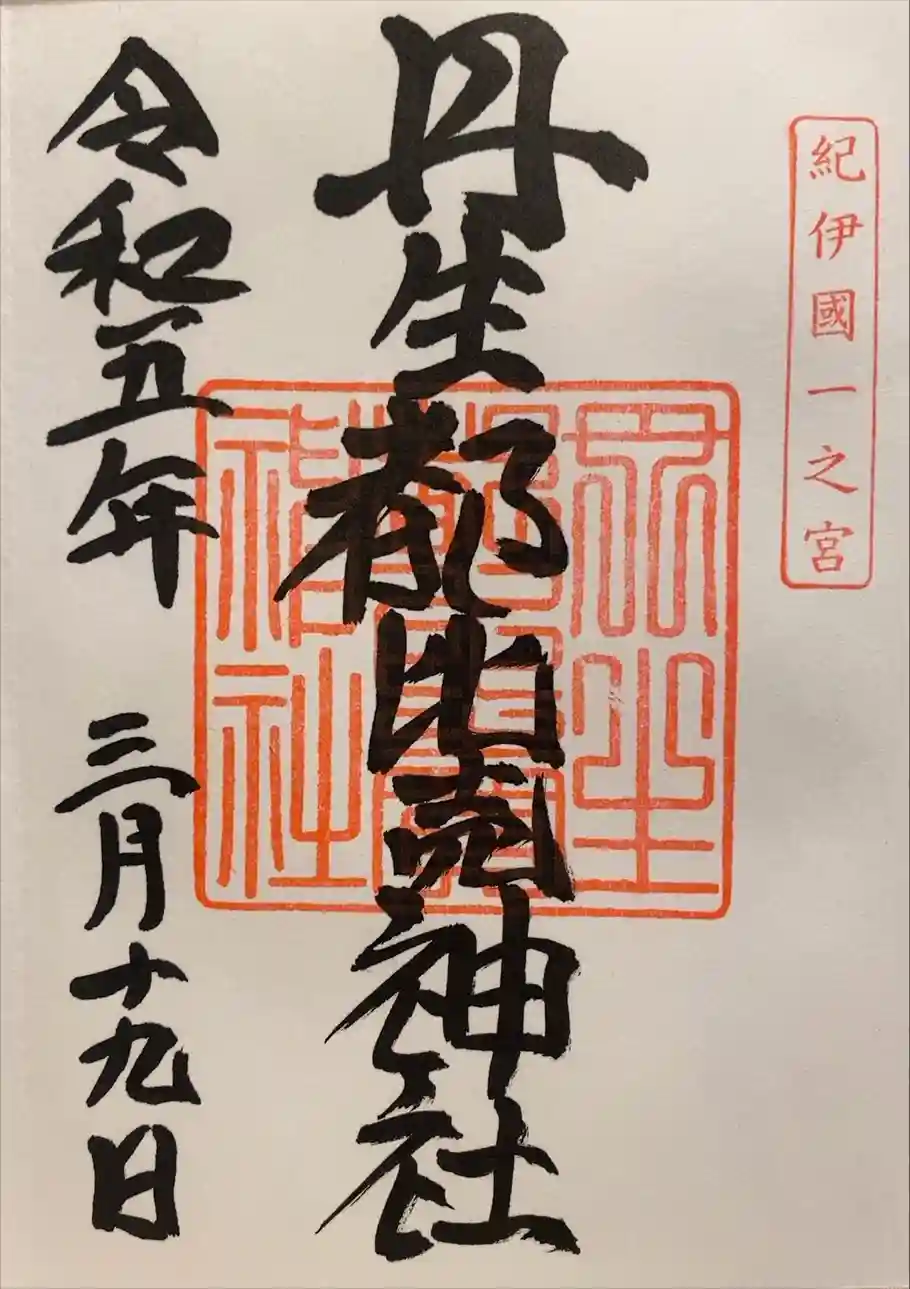 紀伊國一之宮
丹生都比売神社
丹生都比賣神社
令和五年 三月十九日